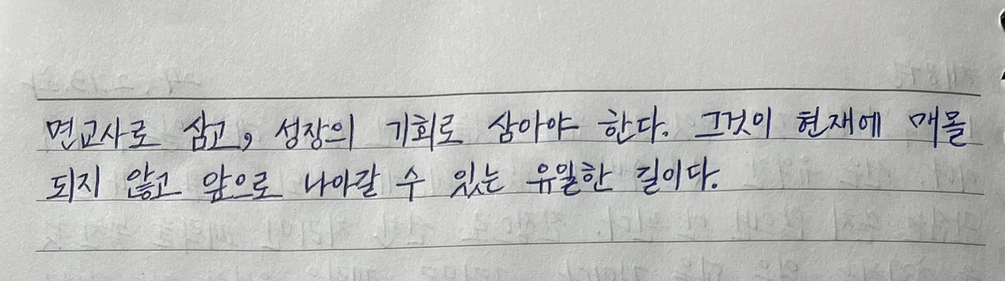 면교사로 삼고, 성장의 기회로 삼아야 한다. 그것이 현재에 매몰
되지 않고 앞으로 나아갈 수 있는 유일한 길이다.